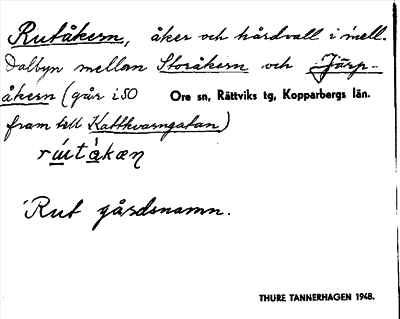 Rutåkern, åker och hårdvall i mell.
Dalbyn mellan Storåkern och Järp-
åkern (går i SO Ore sn, Rättviks tg, Kopparbergs län.
fram till Kattkvarngatan)
Rut gårdsnamn.
THURE TANNERHAGEN 1948.